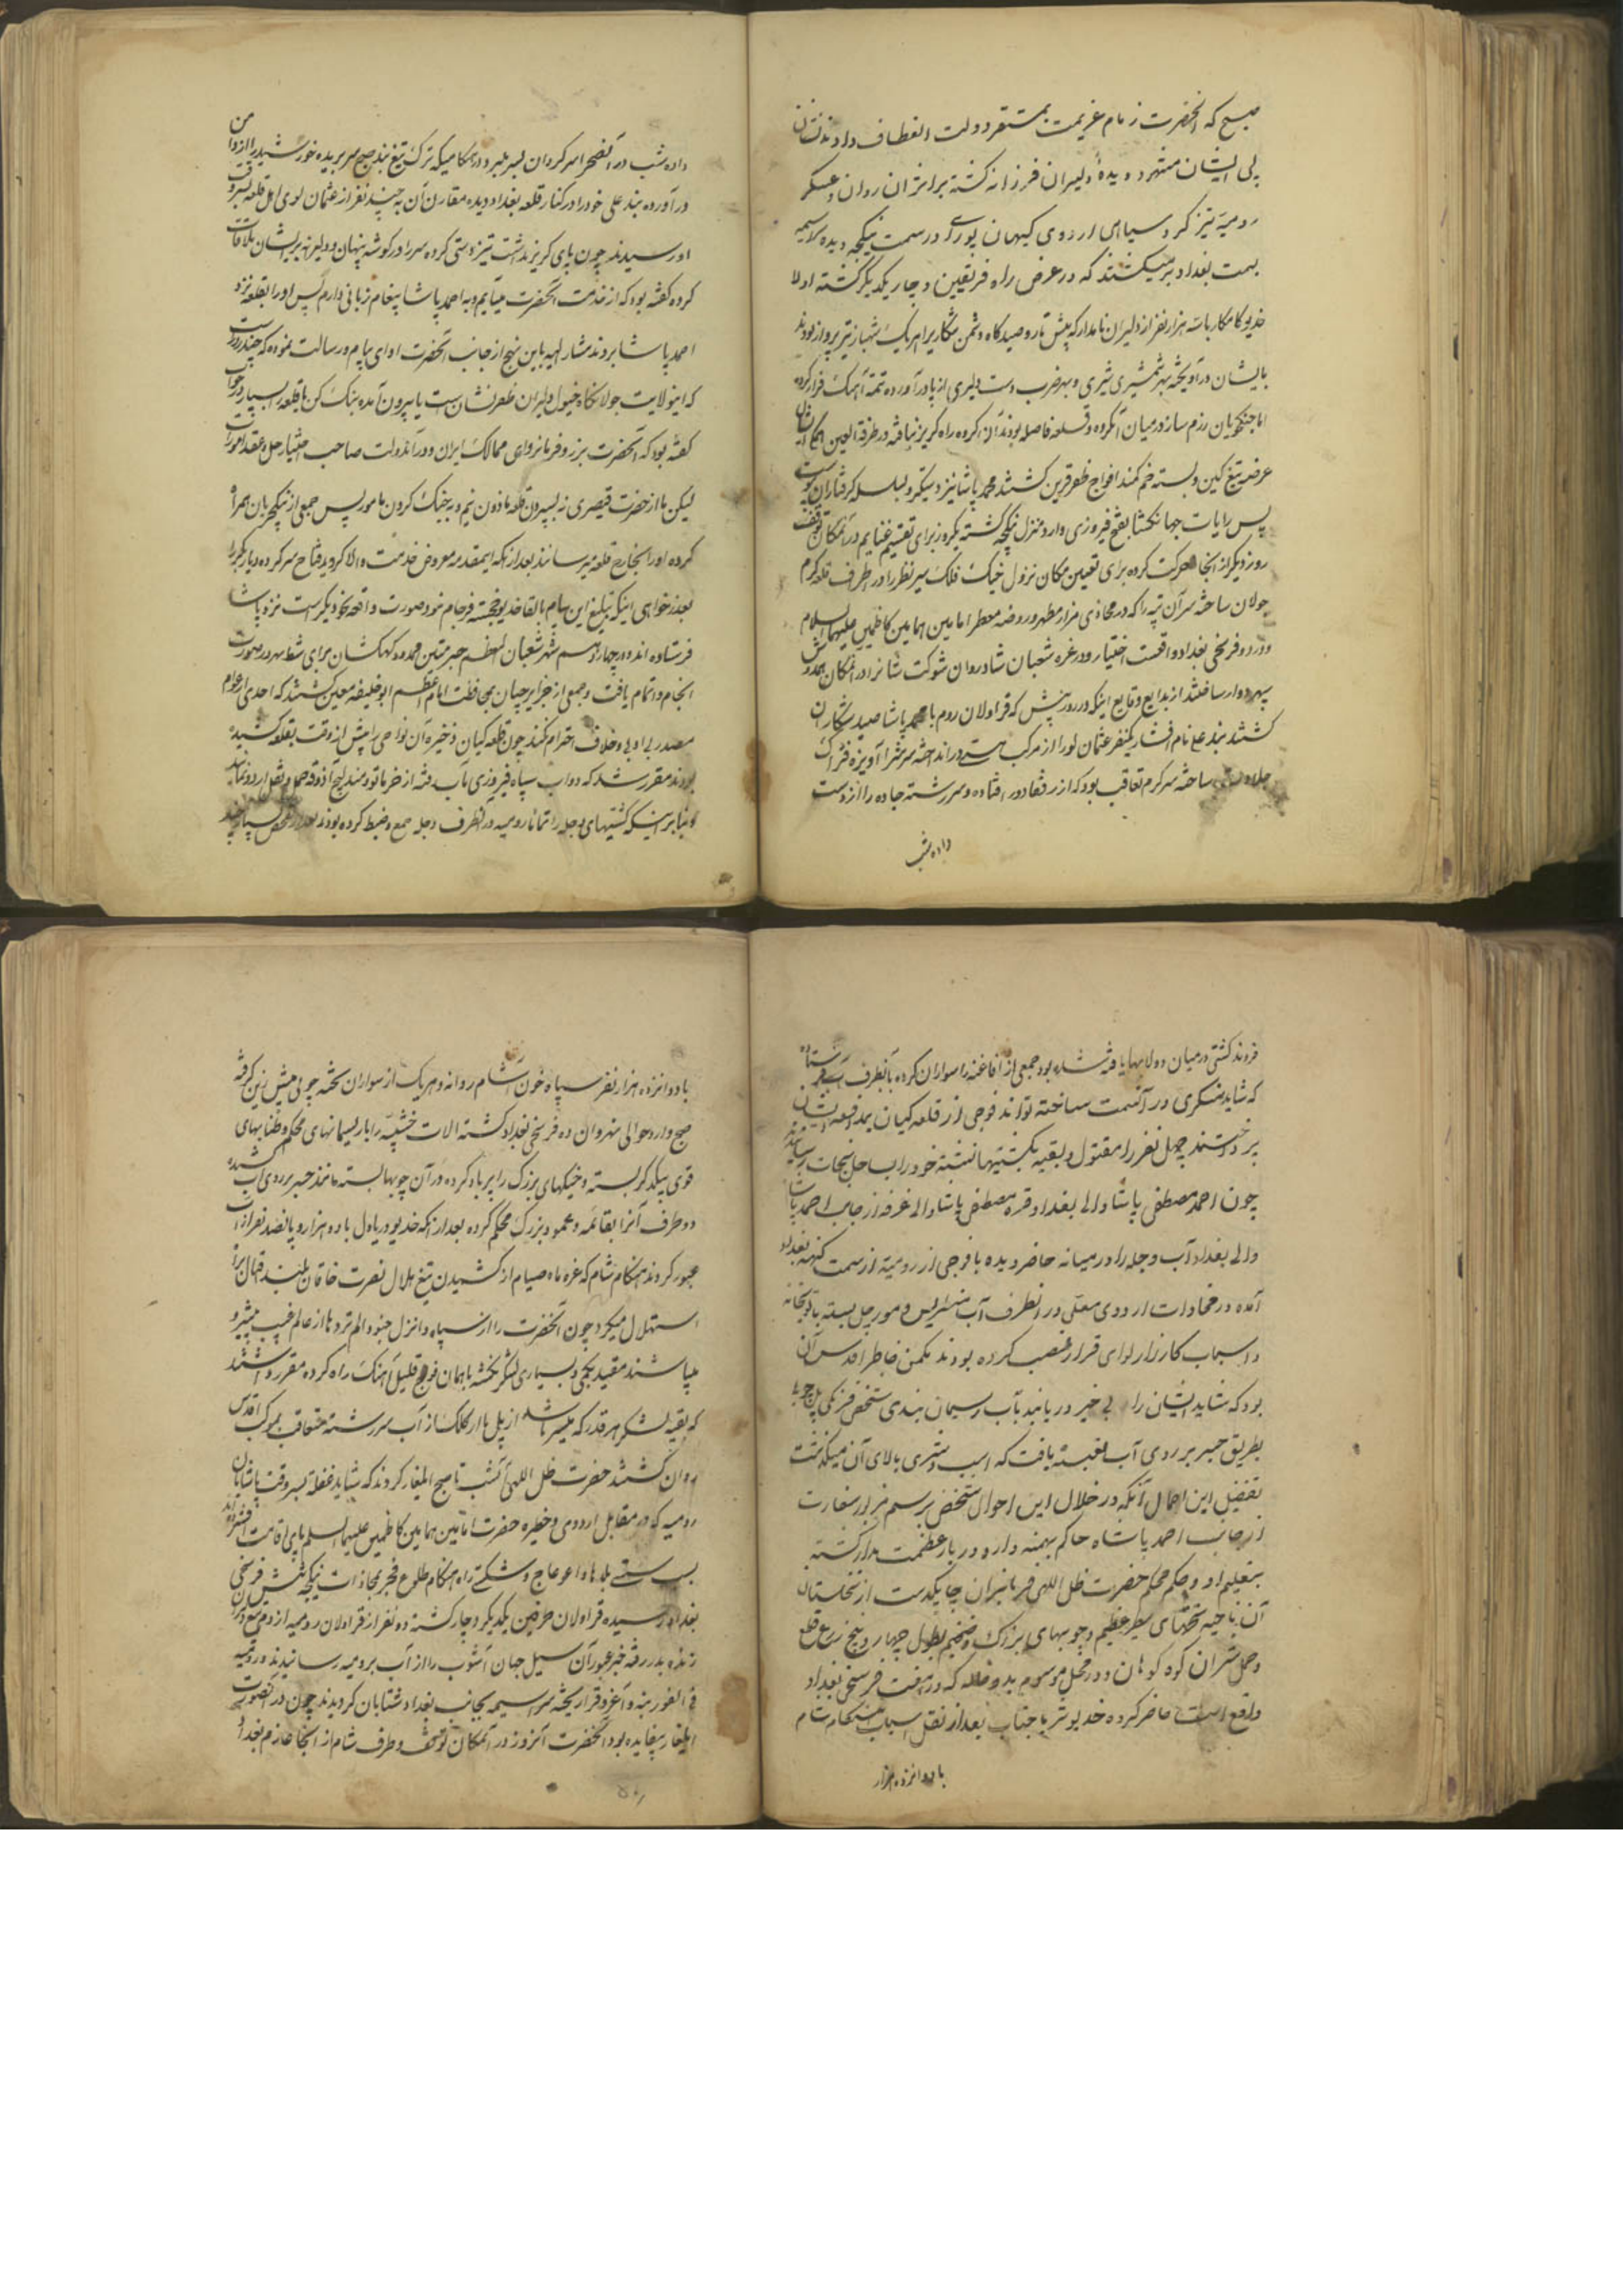 صبح که آنحضرت زمام عزیمت بمستقر دولت انعطاف دادند
پی ایشان منتهر دویدهٔ دلیران فرزانه کشته بر اثر آن روان وعسکر
رومیه نیز کرد سیاهی اردوی کیهان پوی را در سمت نیکچه دیده سراسیمه
بسمت بغداد بر میکشتند که در عرض راه فریقین دچار یکدیگر کشته اولا
خدیو کامکار با سه هزار نفر از دلیران نامدار که پیش تاز و صیدگاه دشمن شکار بر اهریک شهباز تیز پرواز بودند
بایشان در آویخته بهر شمشیری شیری و بهر ضرب دست دلیری از پا در آورده تتمه آهنک فرار کرده
اما جنکجویان رزم ساز در میان آنکروه و قلعه فاصله بودند آن کروه راه کریز نیافته در طرفة العین
عرضه تیغ کین و بسته خم کمند افواج ظفر قرین کشتند محمد پاشا نیز دستکیر و بسلسله کرفتاران پیوست
پس رایات جهانکشا بفتح و فیروزی وارد منزل نیکچه کشته یکروز برای تقسیم غنایم در آنمکان توقف
روز دیگر از آنجا حرکت کرده برای تعیین مکان نزول خیک فلک سیر نظر را در اطراف قلعه کرم
جولان ساخته سر آن تپه را که در محاذی مزار مطهر و روضه معطر امامین همامین کاظمین علیهما السلام
و در دو فرسخی بغداد واقعست اختیار و در غره شعبان شادروان شوکت و شانرا در آنمکان همدوش
سپهر دوار ساختند از بدایع وقایع اینکه در روز پیش که قراولان روم با محمد پاشا صید شکاران
کشتند بند علی نام افشار یکنفر عثمان لو را از مرکب هستی در انداخته سرش را آویزه فتراک
جلادت ساخته سرکرم تعاقب بود که از رفقا دور افتاده و سررشته جاده را از دست
داده شب
داده شب در آنصحرا سرکردان بسر میبرد و در هنکامیکه ترک تیغ بند صبح سر بریده خورشید را از
در آورده بند علی خود را در کنار قلعه بغداد دیده مقارن آن به چند نفر از عثمان لوی اهل قلعه بسر وقت
او رسیدند چون پای کریز نداشت تیز دستی کرده سر را در کوشه پنهان و دلیرانه بر ایشان ملاقات
کرده کفته بود که از خدمت آنحضرت میآیم و به احمد پاشا پیغام زبانی دارم پس او را بقلعه نزد
احمد پاشا بردند مشار الیه باین نهج از جانب آنحضرت ادای پیام و رسالت نموده که چند روزیست
که اینولایت جولانکاه خیول دلیران ظفر نشان ست یا بیرون آمده جنک کن یا قلعه بسپار در جواب
کفته بود که آنحضرت بزرگ و فرمانروای ممالک ایران و در آندولت صاحب اختیار حل و عقد امورات
لیکن ما از حضرت قیصری نه بسپردن قلعه ماذون نیم و نه بجنک کردن مامور پس جمعی از ینکچریان همراه
کرده او را بخارج قلعه میرسانند بعد از آنکه اینمقدمه معروض خدمت والا کردید فتاح سرکرده دیاربکر را
بعذرخواهی اینکه تبلیغ این پیام بالقای خدیو خجسته فرجام نبود صورت واقعه نحو دیگر است نزد پاشا
فرستاده اند و در چهاردهم شهر شعبان المعظم جسر متین همدوش کهکشان برای شط سپهر صورت
انجام و اتمام یافت و جمعی از جزایرچیان بمحافظت امام اعظم ابو حنیفه معین کشتند که احدی از عوام
مصدر بی ادبی و خلاف احترام نکند چون قلعه کیان ذخیره آن نواحی را پیش از وقت بقلعه کشیده
بودند مقرر شد که دواب سپاه فیروزی مآب رفته از خرماتو و مندلیج آذوقه حمل و نقل اردو نمایند
و بنا بر اینکه کشتیهای دجله را تماما رومیه در آنطرف دجله جمع و ضبط کرده بودند بعد از تفحص بسیار چند
فروند کشتی در میان دولابها یافته شده بود جمعی از افاغنه را سواران کرده بآنطرف آب فرستاده
که شاید سنکری در آنسمت ساخته تواند فوجی از قلعه کیان بمدافعه ایشان
برخاستند چهل نفر را مقتول و بقیه بکشتیها نشسته خود را بساحل نجات رسانیدند
چون احمد مصطفی پاشا والی بغداد و قره مصطفی پاشا والی غرفه از جانب احمد پاشا
والی بغداد آب دجله را در میانه حاضر دیده با فوجی از رومیه از سمت کهنه بغداد
آمده در محاذات اردوی معلی در آنطرف آب متترس و مورچل بسته با توپخانه
و اسباب کارزار لوای قرار نصب کرده بودند مکمن خاطر اقدس آن
بود که شاید ایشان را بی خبر دریابند بآب ریسمان بندی شخص فرنکی پل چوبی
بطریق جسر بر روی آب تعبیه یافت که اسب و شتری بالای آن میکذشت
تفصیل این اجمال آنکه در خلال این احوال شخصی برسم سفارت
از جانب احمد پاشا حاکم بهمنه وارد دربار عظمت مدار کشته
بتعلیم او و حکم محکم حضرت ظل اللهی فرمانبران چابکدست از نخلستان
آن ناحیه تختهای سطبر عظیم و چوبهای بزرک و ضخیم بطول چهار و پنج زرع قطع
و حمل شتران کوه کوهان و در محل موسوم بدوخاله که در هفت فرسخی بغداد
واقع است حاضر کرده خدیو ثریا جناب بعد از نقل اسباب هنکام شام
با دوانزده هزار
با دوانزده هزار نفر سپاه خون آشام روانه و هر یک از سواران تخته چوبی پیش زین کرفته
صبح وارد حوالی نهروان ده فرسخی بغداد کشته آلات خشبیه را با ریسمانهای محکم و طنابهای
قوی بیکدکر بسته و خیکهای بزرک را پر باد کرده در آن چوبها بسته مانند جسر بر روی آب کشیده
دو طرف آنرا بقائمه و عمود بزرک محکم کرده بعد از آنکه خدیو دریا دل با دو هزار و پانصد نفر از آن
عبور کردند هنکام شام که غره ماه صیام از کشیدن تیغ هلال نصرت خاقان بلند اقبال را
استهلال میکرد چون آنحضرت را از سپاه و انزل جنودا لم تروها از عالم غیب پیشرو
میباشند مقید بکمی و بسیاری لشکر نکشته با همان فوج قلیل آهنک راه کرده مقرر داشتند
که بقیه لشکر هر قدر که میسر باشد از پل یا از کلک از آب سررشته متعاقب موکب اقدس
روان کشتند حضرت ظل اللهی آنشب تا صبح ایلغار کردند که شاید غفلة بسر وقت پاشایان
رومیه که در مقابل اردوی و حظیره حضرت امامین همامین کاظمین علیهما السلم پای اقامت افشرده اند
بسبب سستی بلدها و اعوجاج و شکستی راه هنکام طلوع فجر بمحاذات نیکچه شش فرسخی
بغداد رسیده قراولان طرفین بیکدیگر دچار کشته ده نفر از قراولان رومیه از دم تیغ
زنده بدر رفته خبر عبور آن سیل جهان آشوب را از آب برومیه رسانیدند و رومیه
فی الفور بنه و اغروق را ریخته سراسیمه بجانب بغداد شتابان کردیدند چون در آنصورت
ایلغار بیفایده بود آنحضرت آنروز در آنمکان توقف و طرف شام از آنجا عازم بغداد